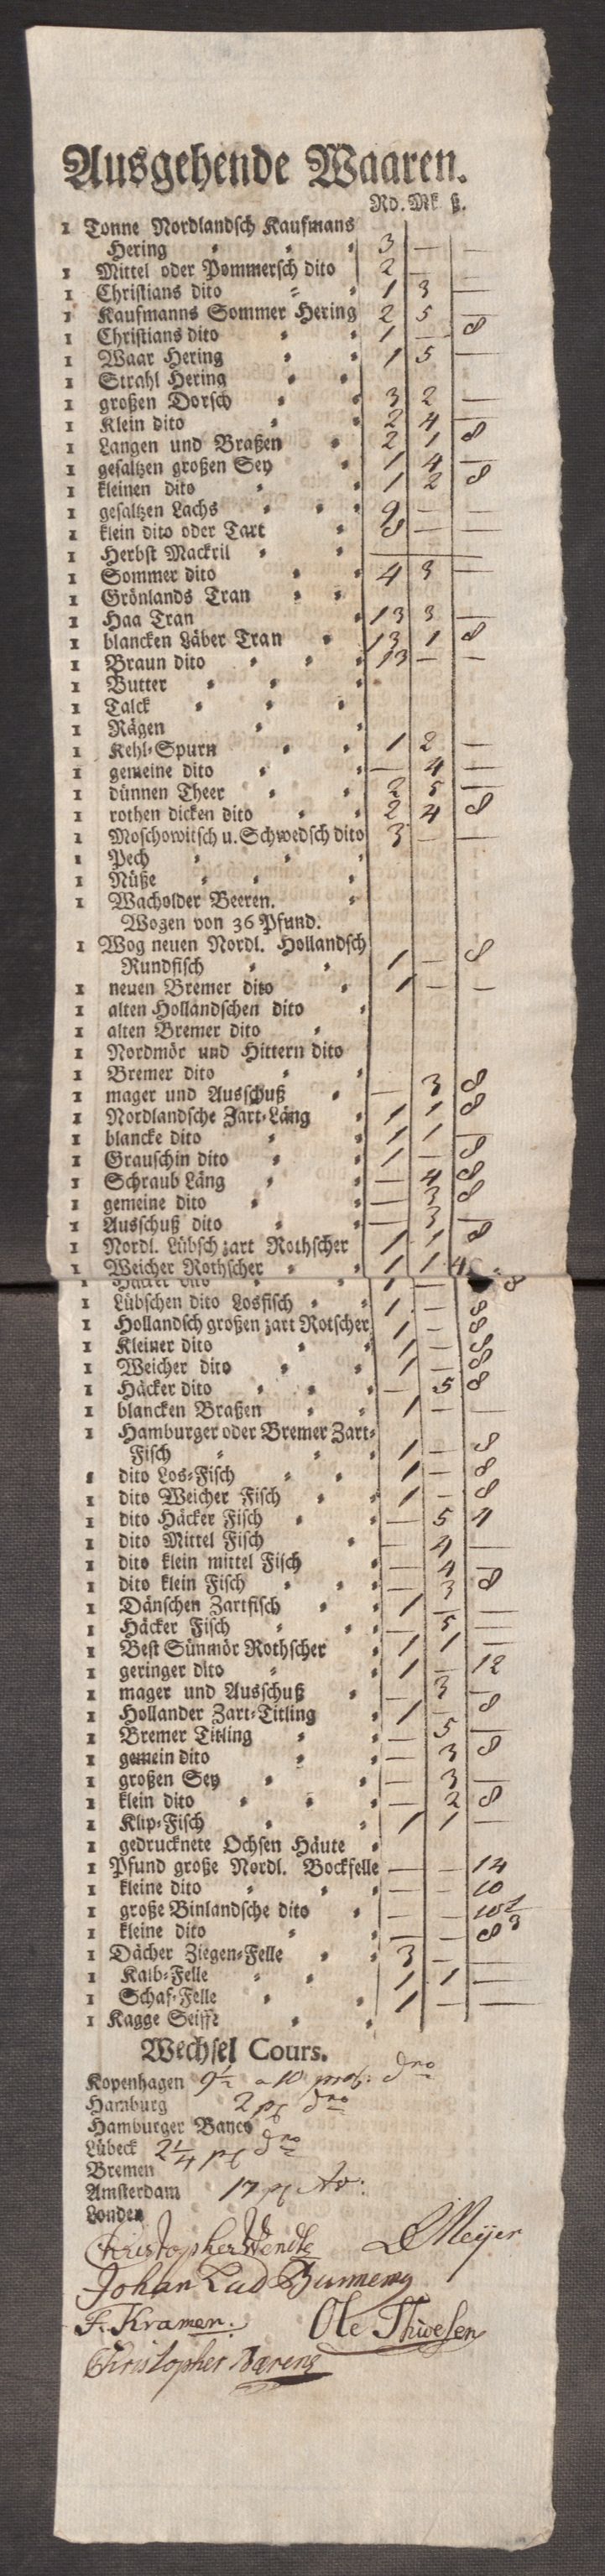 Ausgehende Waaren.
Rd. Mk ß.
1 Tonne Nordlandsch Kaufmans
Hering 3 — —
1 Mittel oder Pommersch dito 2 —
1 Christians dito 1 3 —
1 Kaufmanns Sommer Hering 2 5 —
1 Christians dito 1 — 8
1 Waar Hering 1 5 —
1 Strahl Hering
1 großen Dorsch 3 2 —
1 Klein dito 2 4 —
1 Langen und Braßen 2 1 8
1 gesaltzen großen Sey 1 4 —
1 kleinen dito 1 2 8
1 gesaltzen Lachs 9 — —
1 klein dito oder Tart 8 — —
1 Herbst Mackril —
1 Sommer dito 4 3 —
1 Grönlands Tran
1 Haa Tran 13 3 —
1 blancken Läber Tran 13 1 8
1 Braun dito 13 — —
1 Butter
1 Talck
1 Rägen
1 Kehl-Spurn 1 2 —
1 gemeine dito — 4 —
1 dünnen Theer 2 5 —
1 rothen dicken dito 2 4 8
1 Moschowitsch u. Schwedsch dito 3 — —
1 Pech
1 Nüße
1 Wacholder Beeren.
Wogen von 36 Pfund.
1 Wog neuen Nordl. Hollandsch
Rundfisch 1 — 8
1 neuen Bremer dito 1 — —
1 alten Hollandschen dito
1 alten Bremer dito
1 Nordmör und Hittern dito
1 Bremer dito
1 mager und Ausschuß — 3 8
1 Nordlandsche Zart-Läng 1 1 8
1 blancke dito 1 1 —
1 Grauschin dito 1 — 8
1 Schraub Läng — 4 8
1 gemeine dito — 3 8
1 Ausschuß dito — 3 —
1 Nordl. Lübsch zart Rothscher 1 1 8
1 Weicher Rothscher 1 1 4
1 — 8
1 Lübschen dito Losfisch 1 — 8
1 Hollandsch großen zart Rotscher 1 — 8
1 Kleiner dito 1 — 8
1 Weicher dito 1 — 8
1 Häcker dito — 5 8
1 blancken Braßen 1 — —
1 Hamburger oder Bremer Zart-
Fisch 1 — 8
1 dito Los-Fisch 1 — 8
1 dito Weicher Fisch 1 — 8
1 dito Häcker Fisch — 5 4
1 dito Mittel Fisch — 4 —
1 dito klein mittel Fisch — 4 —
1 dito klein Fisch — 3 8
1 Dänschen Zartfisch 1 — —
1 Häcker Fisch — 5 —
1 Best Sünmör Rothscher 1 1 —
1 geringer dito 1 — 12
1 mager und Ausschuß — 3 —
1 Hollander Zart-Titling 1 — 8
1 Bremer Titling — 5 —
1 gemein dito — 3 8
1 großen Sey — 3 —
1 klein dito — 2 8
1 Klip-Fisch 1 1 —
1 gedrucknete Ochsen Häute
1 Pfund große Nordl. Bockfelle — — 14
1 kleine dito — — 10
1 große Binlandsche dito — —
1 kleine dito — — 8
1 Dächer Ziegen-Felle 3 — —
1 Kalb-Felle 1 1 —
1 Schaf-Felle 1 — —
1 Kagge Seiffe
Wechsel Cours.
Kopenhagen 9½ a 10
Hamburg 2
Hamburger Banco
Lübeck 2¼
Bremen
Amsterdam 17
Londen
Christopher Wendte D Meijer
Johan Lud
F. Kramer. Ole Thwesen
Christopher Barens